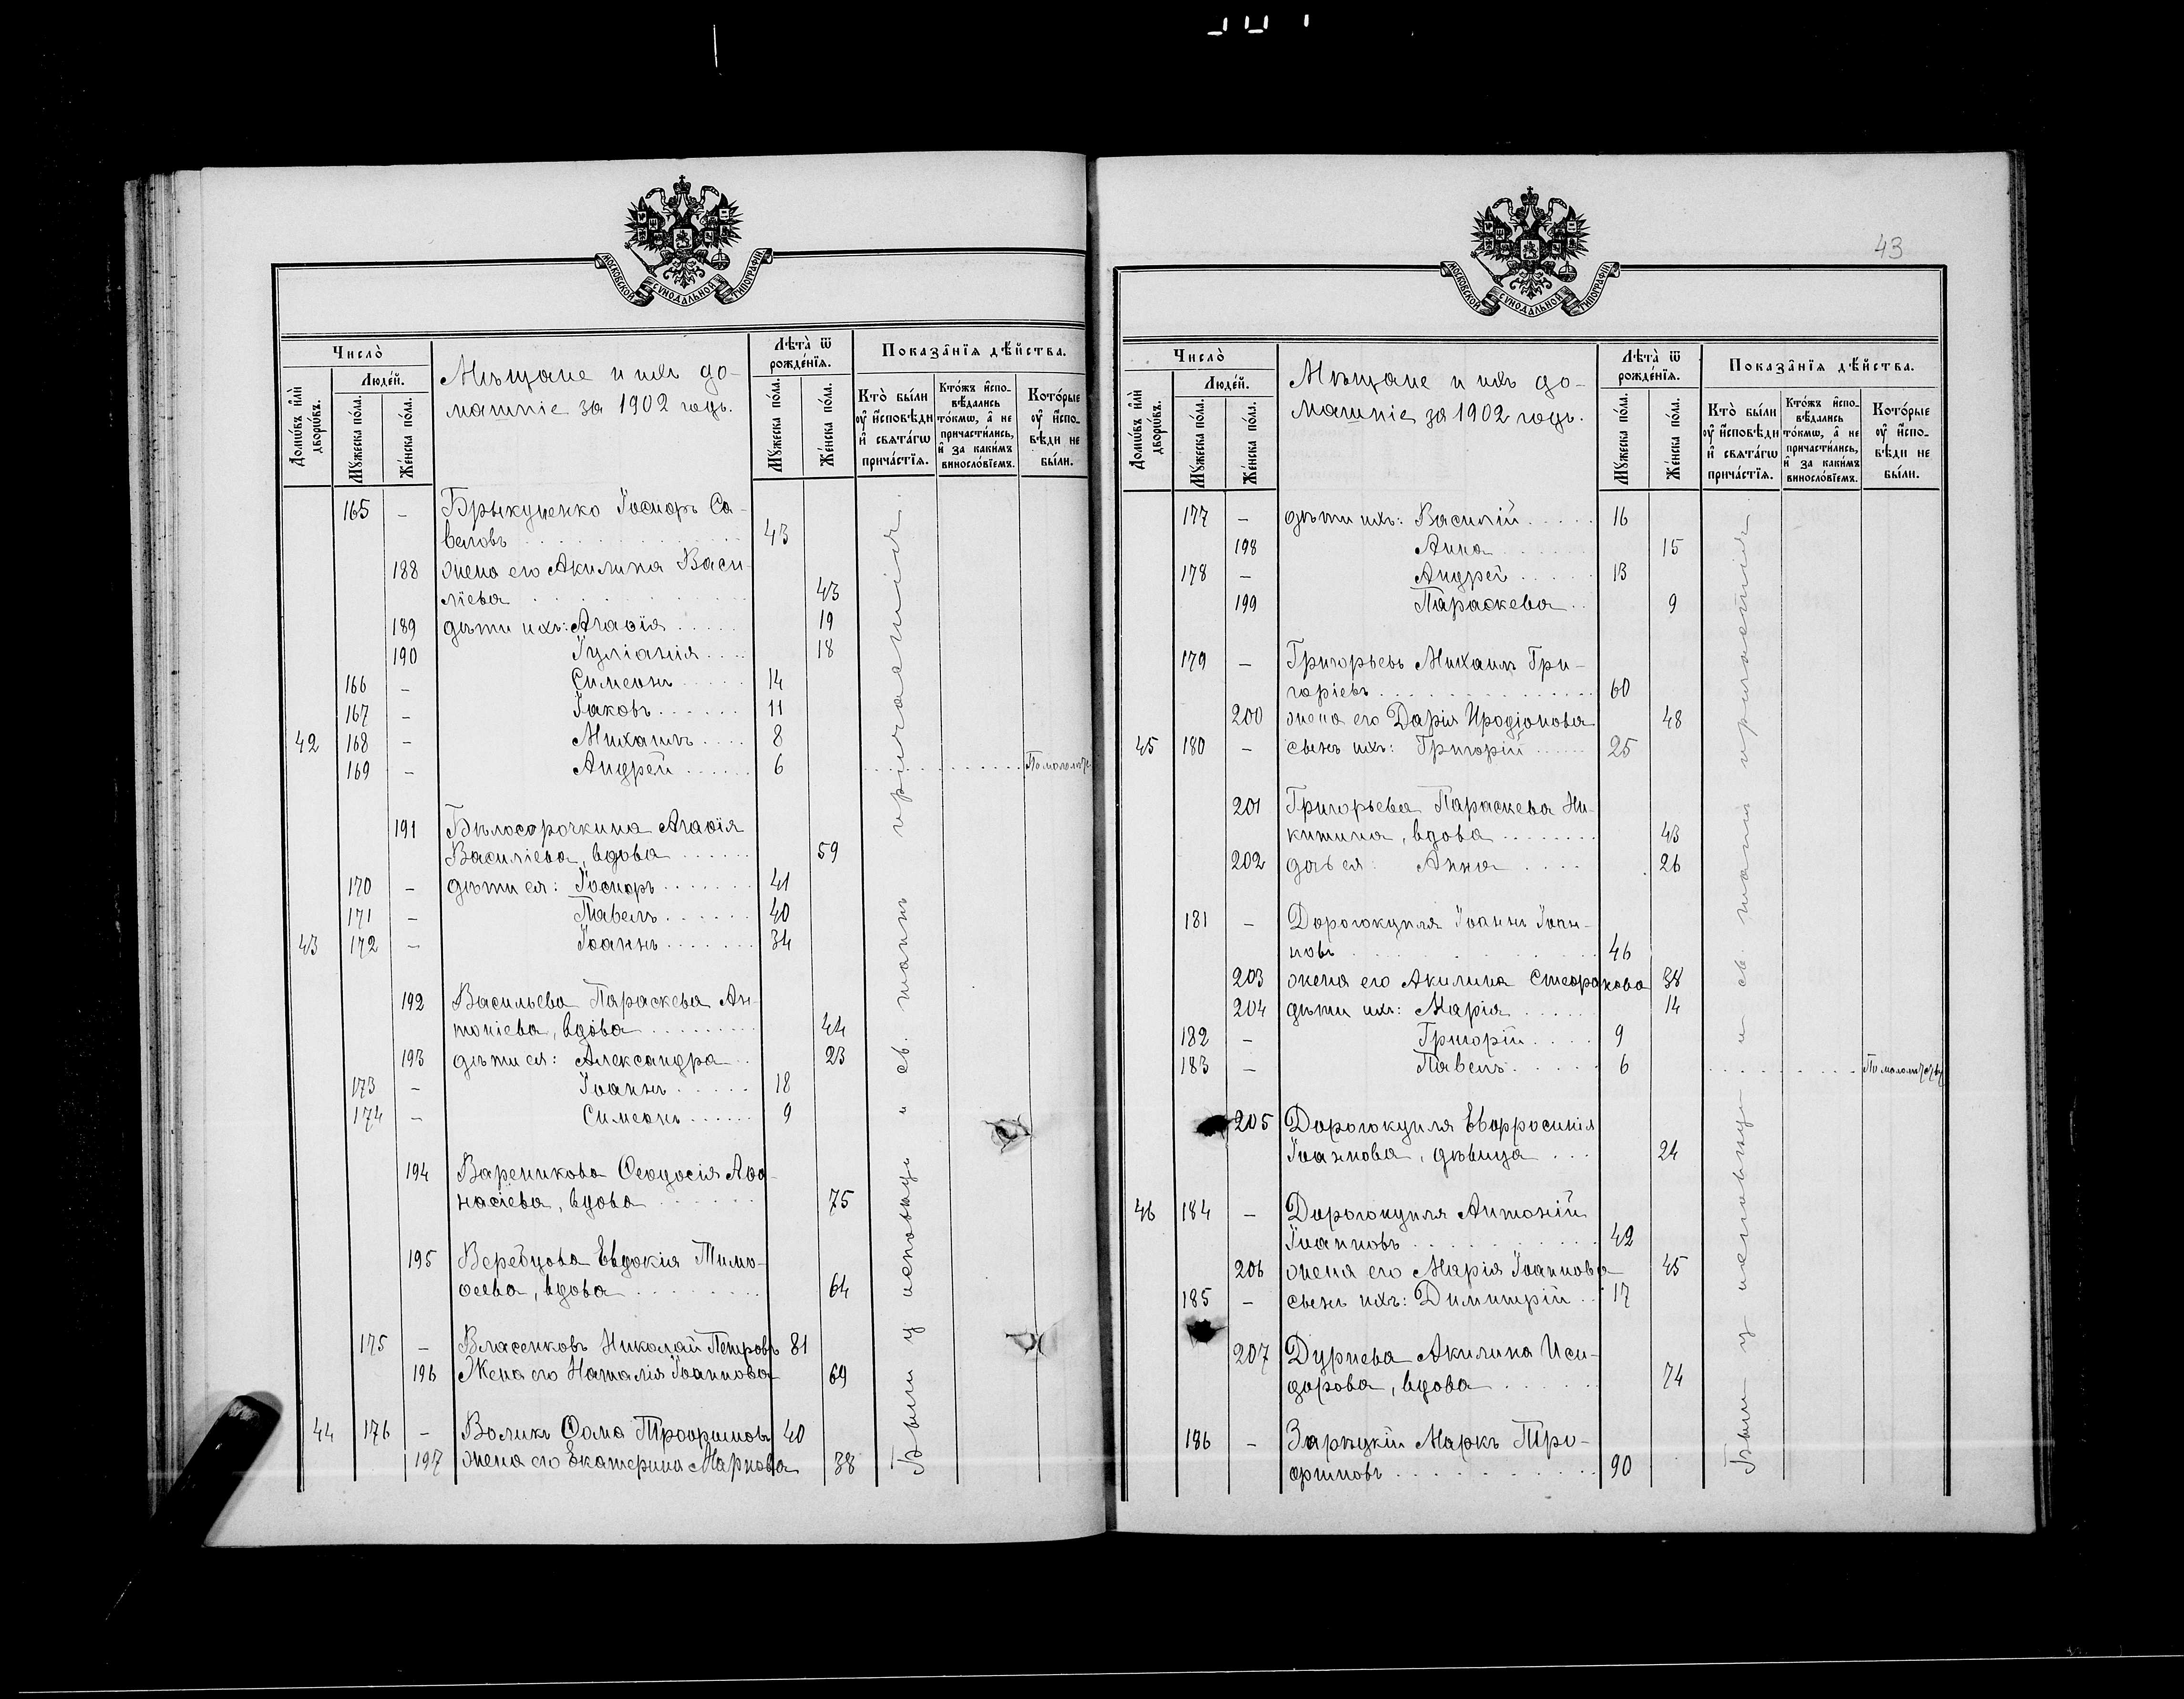 МОСКОВСКОЙ СѴНОДАЛЬНОЙ ТИПОГРАФІИ
Число̀
Людей.
Домѡ́въ и҆лѝ дворѡ́въ.
Мꙋ́жеска по́ла.
Же́нска по́ла.
Мѣщане и ихъ до-
машніе за 1902 годъ.
Лѣ́та ѿ рожде́нїя.
Мꙋ́жеска по́ла.
Же́нска по́ла.
Показа̑нїя дѣ́йства.
Кто̀ бы́ли ᲂу҆ и҆сповѣди и҆ свята́гѡ прича́стїя.
Кто́жъ и҆спо-вѣ́дались то́кмѡ, а҆ не причасти́лись, и҆ за каки́мъ винослові́емъ.
Кото́рые ᲂу҆ и҆спо-вѣди не бы́ли.
165 — Брыкуненко Іосифъ Са-
ваговъ 43
188 жена его Акилина Васи-
ліева 43
189 дѣти ихъ: Агафія 19
190 Іуліанія 18
166 — Симеонъ 14
167 — Іаковъ 11
42 168 — Михаилъ 8
169 — Андрей 6
191 Бѣлосорочкина Агафія
Василіева, вдова 59
170 — дѣти ея: Іосифъ 41
171 — Павелъ 40
43 172 — Іоаннъ 34
192 Васильева Параскева Ан-
тоніева, вдова 44
193 дѣти ея: Александра 23
173 — Іоаннъ 18
174 — Симеонъ 9
194 Вареникова Ѳеодосія Аѳа-
насіева, вдова 75
195 Веребцова Евдокія Тимо-
ѳеева, вдова 64
175 — Власенковъ Николай Петровъ 81
196 Жена его Наталія Іоаннова 69
44 176 — Воликъ Ѳома Трофимовъ 40
197 жена его Екатерина Маркова 38
Были у исповѣди и св. таинъ причащенія.
43
МОСКОВСКОЙ СѴНОДАЛЬНОЙ ТИПОГРАФІИ
Число̀
Людей.
Домѡ́въ и҆лѝ дворѡ́въ.
Мꙋ́жеска по́ла.
Же́нска по́ла.
Мѣщане и ихъ до-
машніе за 1902 годъ.
Лѣ́та ѿ рожде́нїя.
Мꙋ́жеска по́ла.
Же́нска по́ла.
Показа̑нїя дѣ́йства.
Кто̀ бы́ли ᲂу҆ и҆сповѣди и҆ свята́гѡ прича́стїя.
Кто́жъ и҆спо-вѣ́дались то́кмѡ, а҆ не причасти́лись, и҆ за каки́мъ винослові́емъ.
Кото́рые ᲂу҆ и҆спо-вѣди не бы́ли.
177 — дѣти ихъ: Василій 16
198 Анна 15
178 — Андрей 13
199 Параскева 9
179 — Григорьевъ Михаилъ Гри-
горіевъ 60
200 жена его Дарія Иродіонова 48
45 180 — сынъ ихъ: Григорій 25
201 Григорьева Параскева Ни-
китина, вдова 43
202 дочь ея: Анна 26
181 — Дорогокупля Іоаннъ Іоан-
новъ 46
203 жена его Акилина Стефанова 38
204 дѣти ихъ: Марія 14
182 — Григорій 9
183 — Павелъ 6 По малолѣтству
205 Дорогокупля Евфросинія
Іоаннова, дѣвица 24
46 184 — Дорогокупля Антоній
Іоанновъ 42
206 жена его Марія Іоаннова 45
185 — сынъ ихъ: Димитрій 17
207 Дурнева Акилина Иси-
дорова, вдова 74
186 — Зарѣцкій Маркъ Тро-
фимовъ 90
Были у исповѣди и св. таинъ причащенія